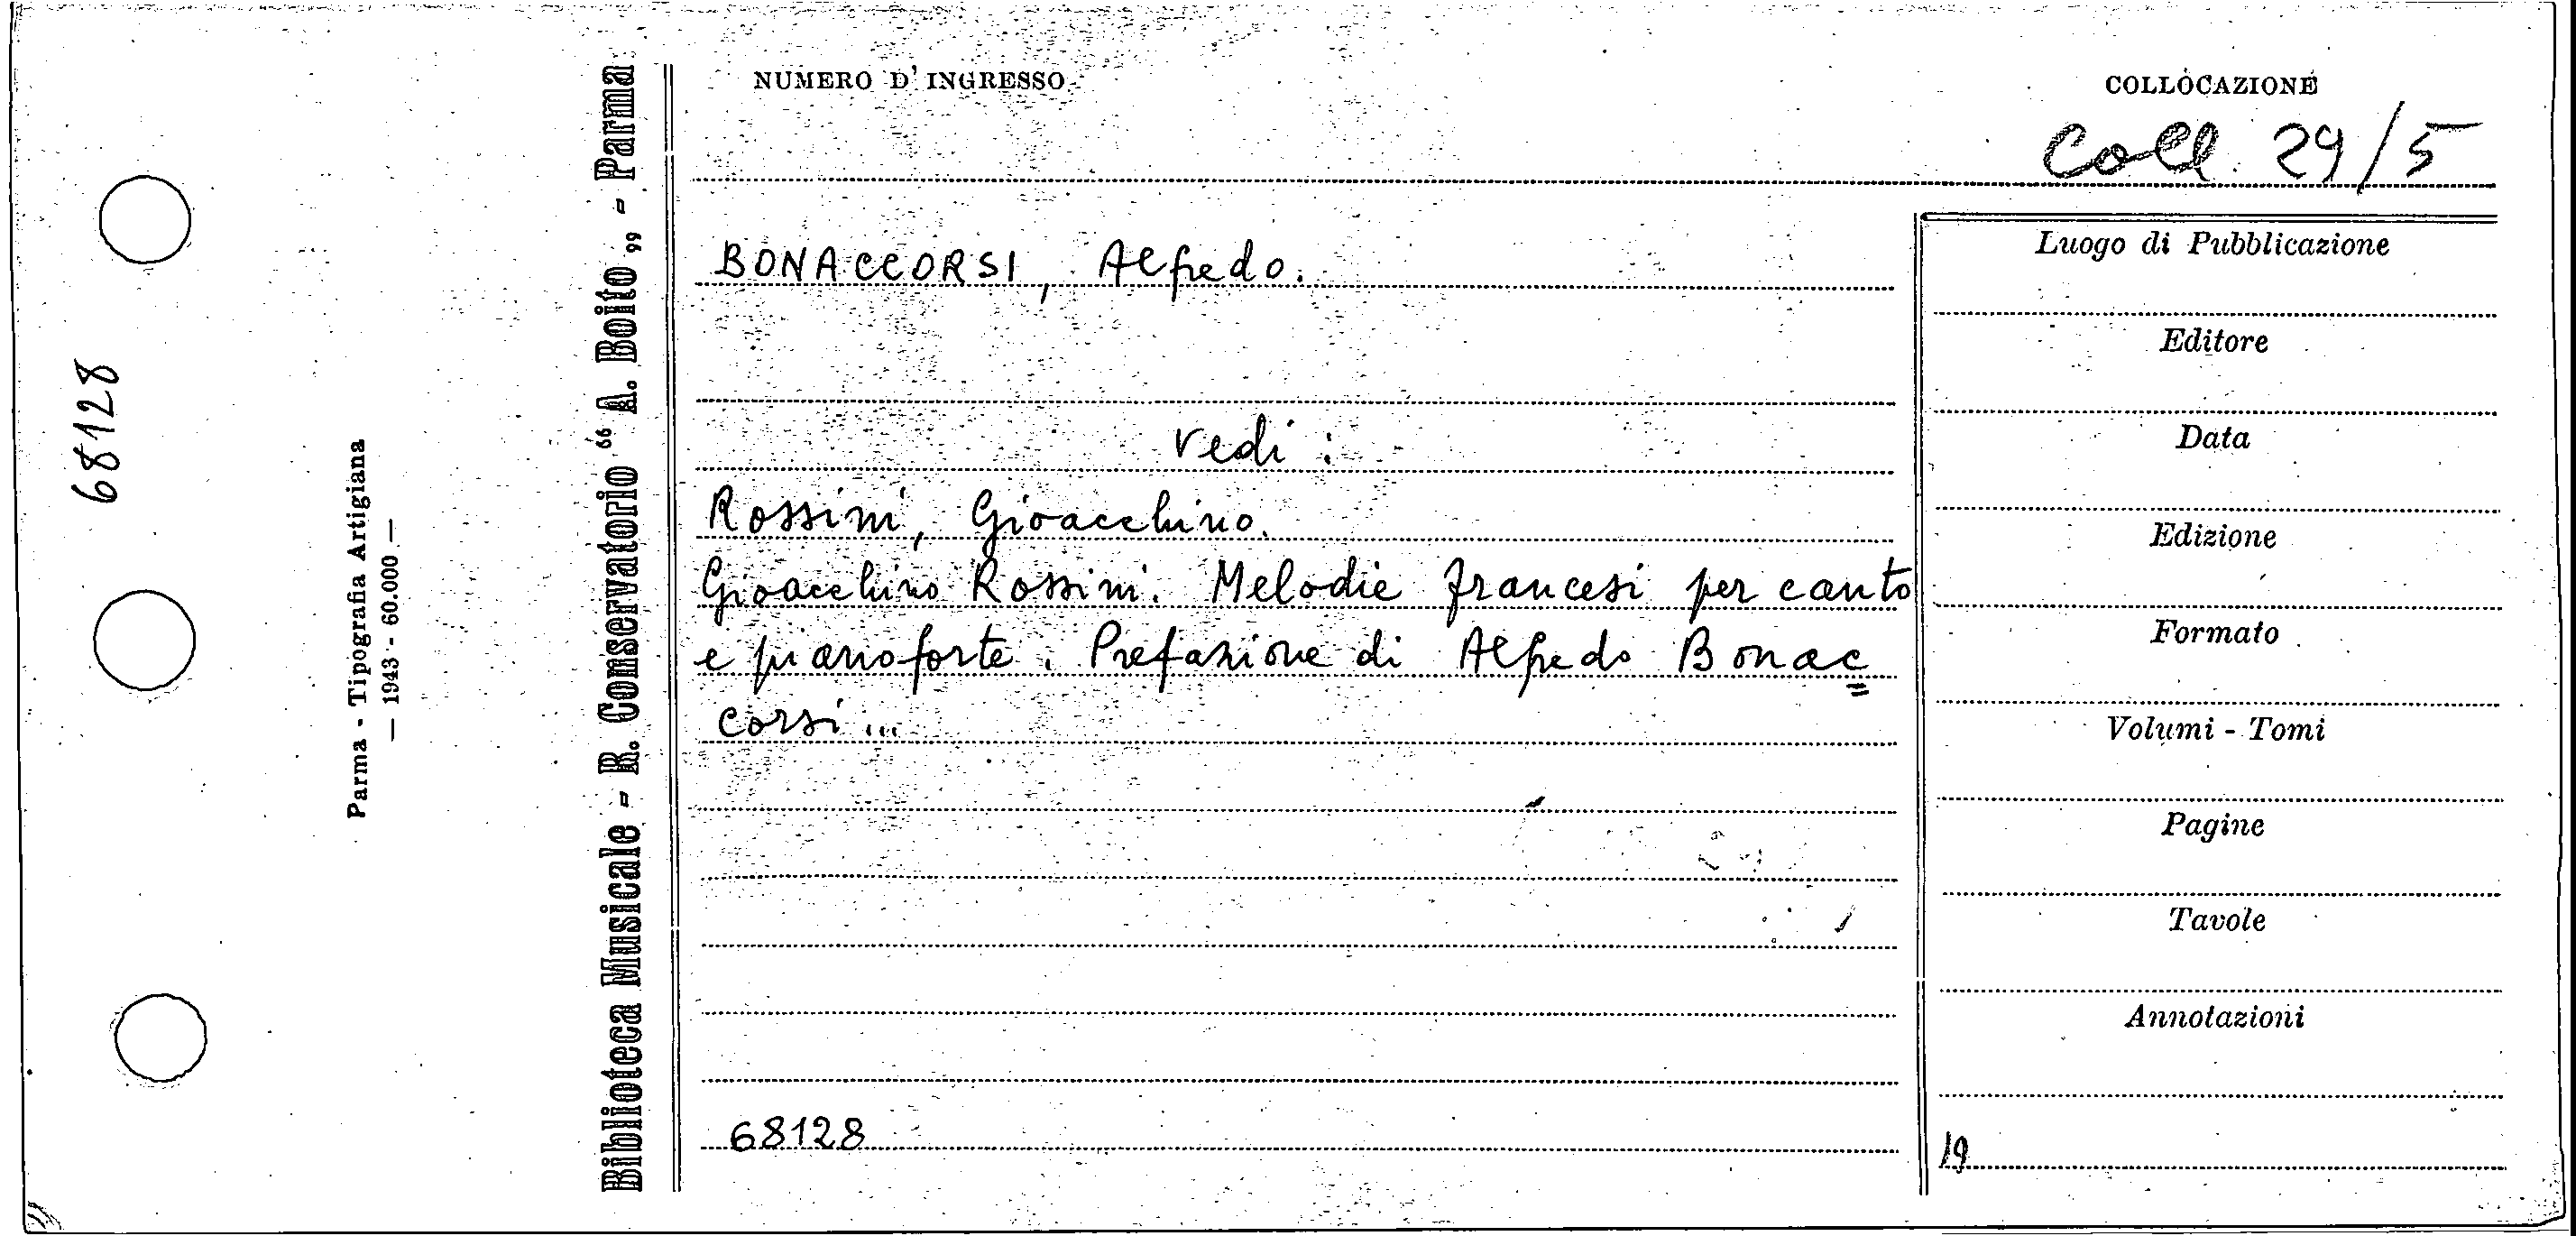 68128
Parma - Tipografia Artigiana
— 1943 - 60.000 —
Biblioteca Musicale - R. Conservatorio “ A. Boito „ - Parma
NUMERO D' INGRESSO
COLLOCAZIONE
Coll. 29/5
BONACCORSI, Alfredo.
vedi :
Rossini, Gioacchino.
Gioacchino Rossini. Melodie francesi per canto
e pianoforte. Prefazione di Alfredo Bonac
corsi ...
68128
Luogo di Pubblicazione
Editore
Data
Edizione
Formato
Volumi - Tomi
Pagine
Tavole
Annotazioni
19